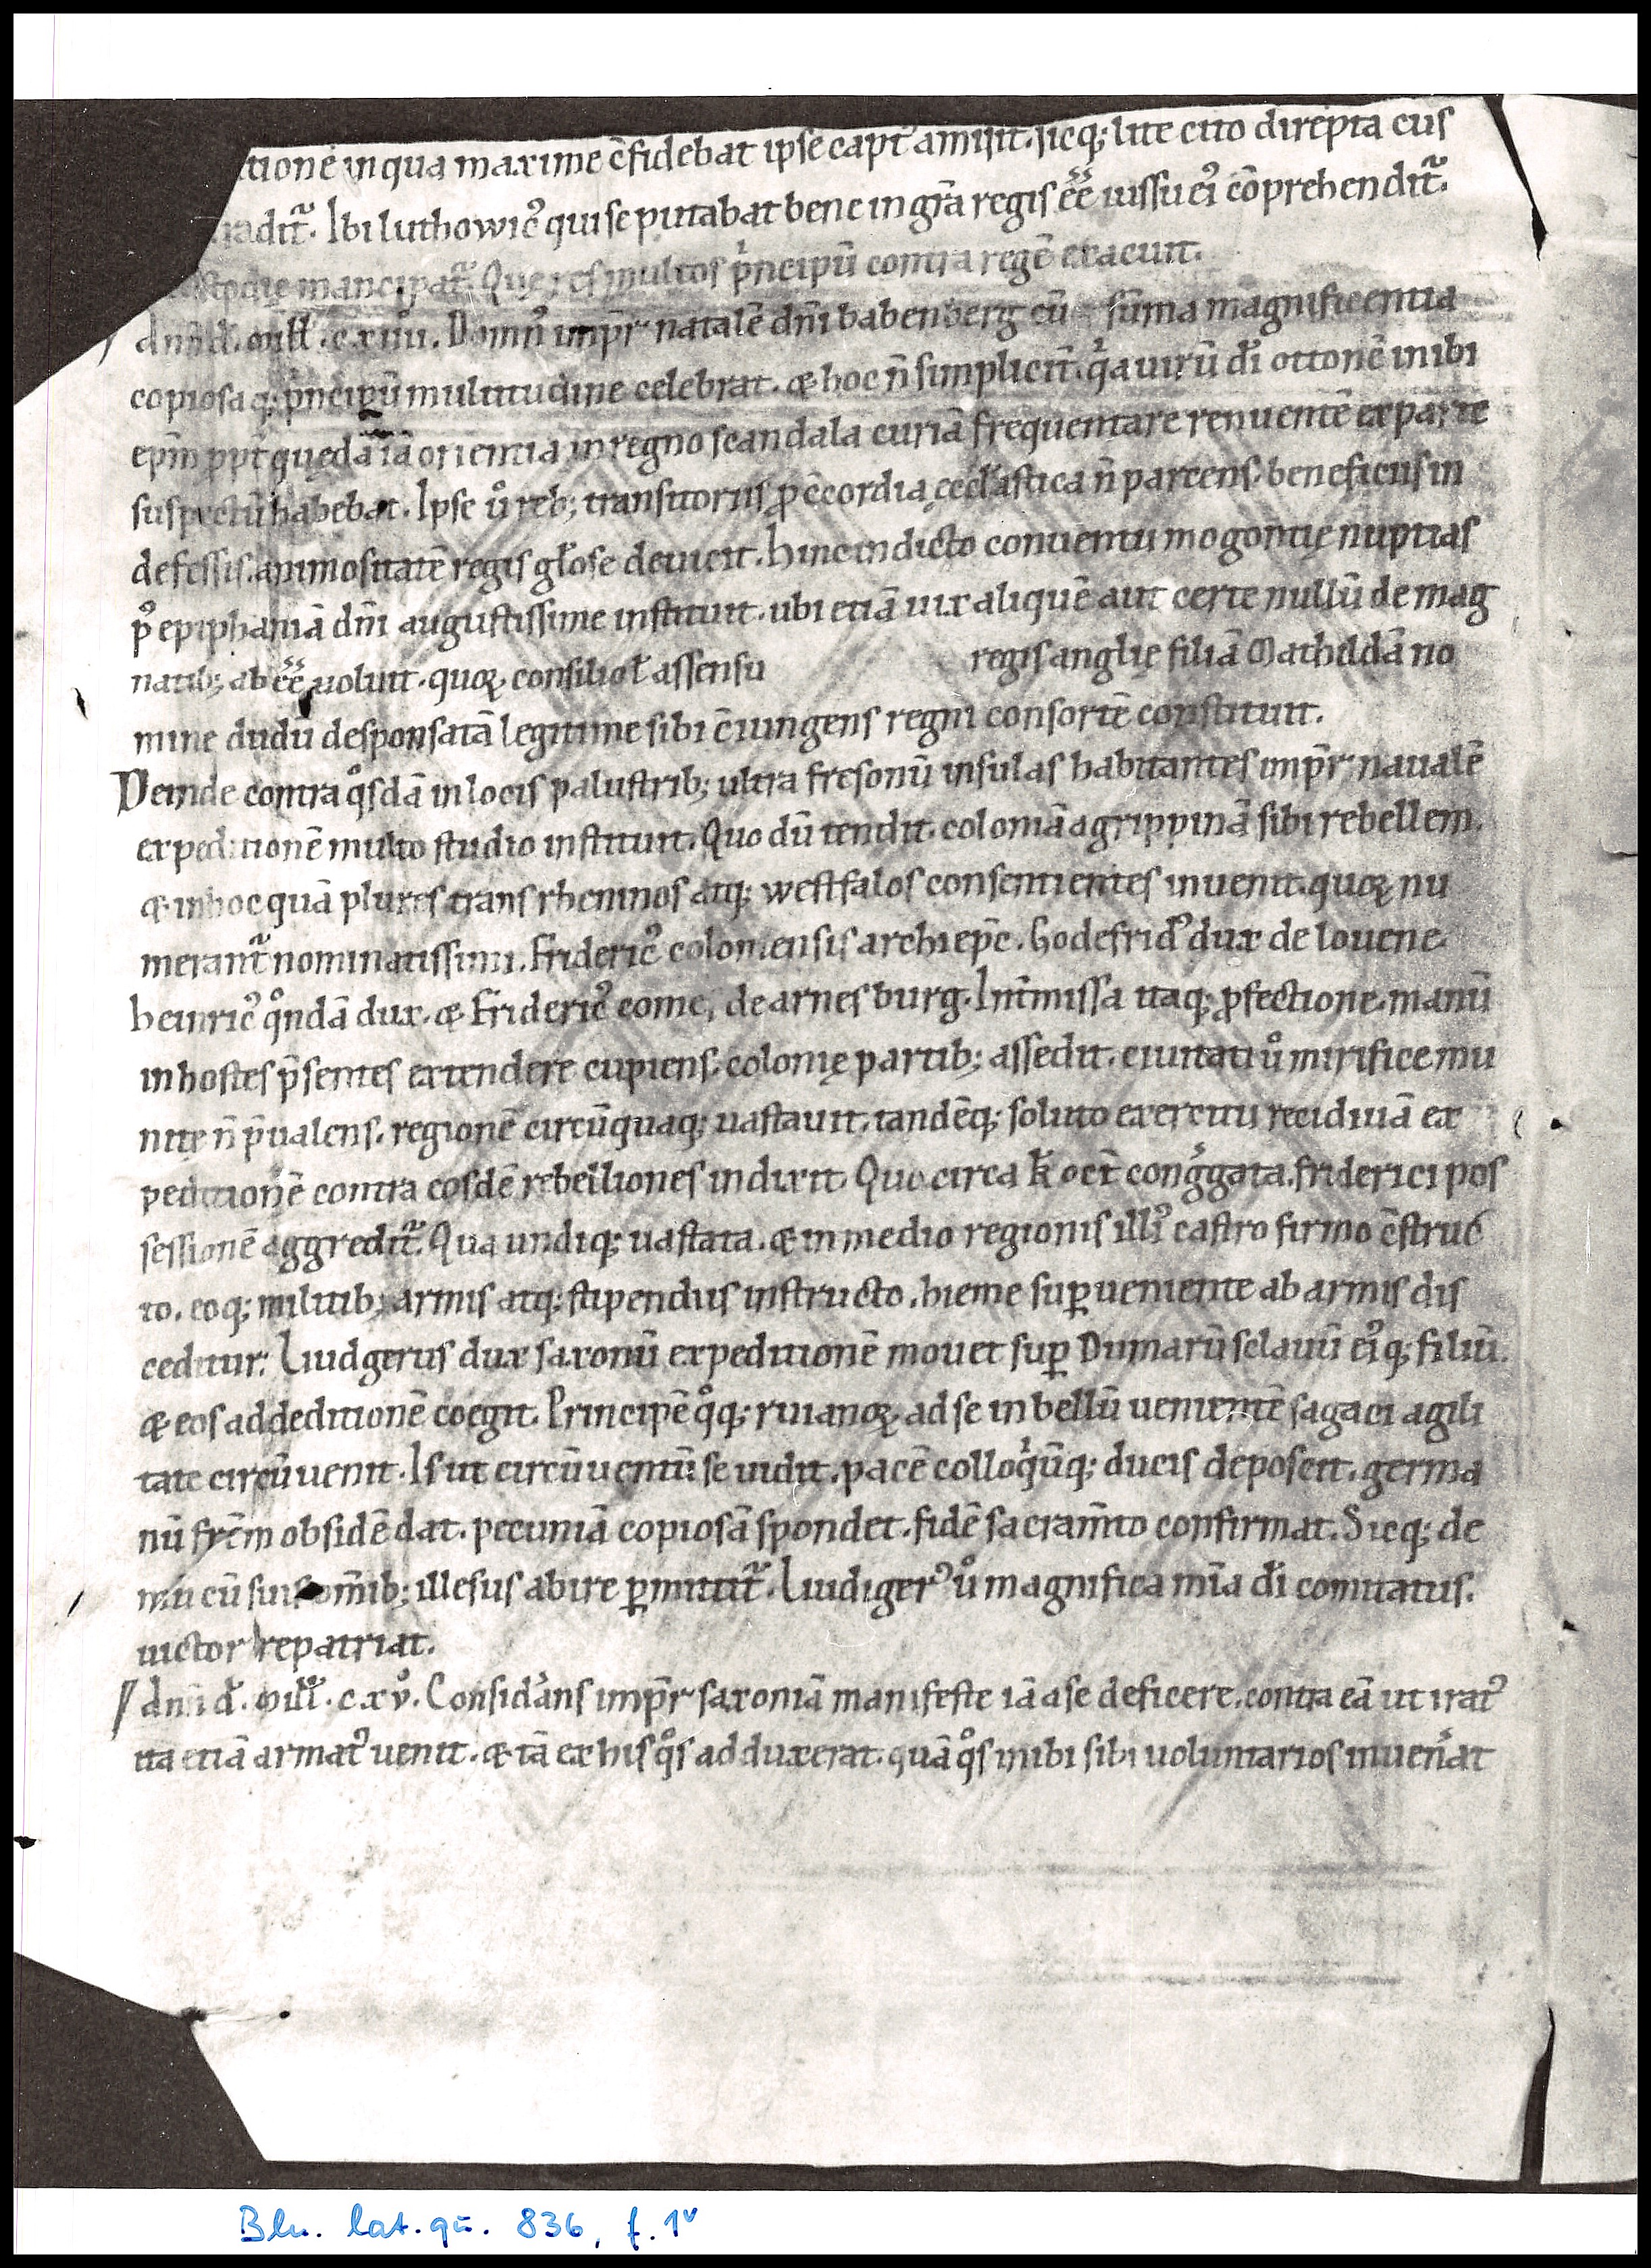 tione in qua maxime c̄fidebat ipse capt᷑ amisit. sicq; lite cito direpta cus
tradit᷑. Ibi luthowic᷒ qui se putabat bene in gr̄a regis ēē iussu ei᷒ cōprehendit᷑.
custodię mancipat᷑. Quę res multos pͥncipū contra regē exacuit.
dn̄i d̄. mill̄. c.xiiii. Domn᷒ imp̄r natalē dn̄i babenberg cū sūma magnificentia
copiosaq; pͥncipū multitudine celebrat. & hoc n̄ simplicit̄. qͥa uirū dī ottonē inibi
ep̄m ppt̄ quędā iā orientia in regno scandala curiā frequentare renuentē ex parte
suspectū habebat. Ipse uͦ reb; transitoriis ꝓ c̄cordia ęccl̄astica n̄ parcens. beneficiis in
defessis. animositatē regis gl̄ose deuicit. hinc indicto conuentu mogontię nuptias
p᷒ epiphaniā dn̄i augustissime instituit. ubi etiā uix aliquē aut certe nullū de mag
natib; abēē uoluit. quoꝝ consilio ł assensu regis anglię filiā Matheldā no
mine dudū desponsatā legitime sibi c̄iungens regni consortē constituit.
Deinde contra qͦsdā in locis palustrib; ultra fresonū insulas habitantes imp̄r naualē
expeditionē multo studio instituit. Quo dū tendit. coloniā agrippinā sibi rebellem.
& in hoc quā plures transrheninos atq; westfalos consentientes inuenit. quoꝝ nu
merant᷑ nominatissimi. Frideric᷒ coloniensis archiep̄c. Godefrid᷒ dux de louene
heinric᷒ qͦndā dux. & Frideric᷒ comes de arnesburg. Int̄missa itaq; ꝓfectione. manū
in hostes p̄sentes extendere cupiens. colonię partib; assedit. ciuitati uͦ mirifice mu
nitę n̄ p̄ualens. regionē circūquaq; uastauit. tandēq; soluto exercitu recidiuā ex
peditionē contra eosdē rebelliones indixit. Quocirca k̄ oct̄ congͤgata. friderici pos
sessionē aggredit᷑. Qua undiq; uastata. & in medio regionis illi᷒ castro firmo c̄struc
to. eoq; militib; armis atq; stipendiis instructo. hieme suꝑueniente ab armis dis
ceditur. Liudgerus dux saxonū expeditionē mouet suꝑ Dumarū sclauū ei᷒q; filiū.
& eos ad deditionē coegit. Principē qͦq; ruianoꝝ ad se in bellū uenientē sagaci agili
tate circūuenit. Is ut circūuentū se uidit. pacē colloqͥūq; ducis deposcit. germa
nū fr̄em obsidē dat. pecuniā copiosā spondet. fidē sacram̄to confirmat. Sicq; de
mū cū suis om̄ib; illesus abire ꝑmittit᷑. Liudiger᷒ uͦ magnifica mīa dī comitatus.
uictor repatriat.
dn̄i d̄. mill̄. c.xv̊. Considͣans imp̄r saxoniā manifeste iā a se deficere. contra eā ut irat᷒
ita etiā armat᷒ uenit. & tā ex his qͦs adduxerat. quā qͦs inibi sibi uoluntarios inuen̄at
Bln. lat. qu. 836, f. 1v